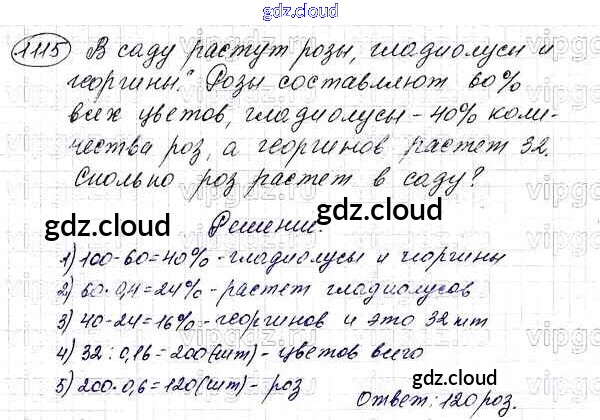 gdz.cloud
1115 В саду растут розы, гладиолусы и
георгины. Розы составляют 60%
всех цветов, гладиолусы - 40% коли-
чества роз, а георгинов растет 32.
Сколько роз растет в саду?
gdz.cloud
gdz.cloud
Решение:
1) 100-60=40% - гладиолусы и георгины
2) 60·0,4=24% - растет гладиолусов
3) 40-24=16% - георгинов и это 32 шт
4) 32:0,16=200(шт) - цветов всего
5) 200·0,6=120(шт) - роз
gdz.cloud
Ответ: 120 роз.
gdz.cloud